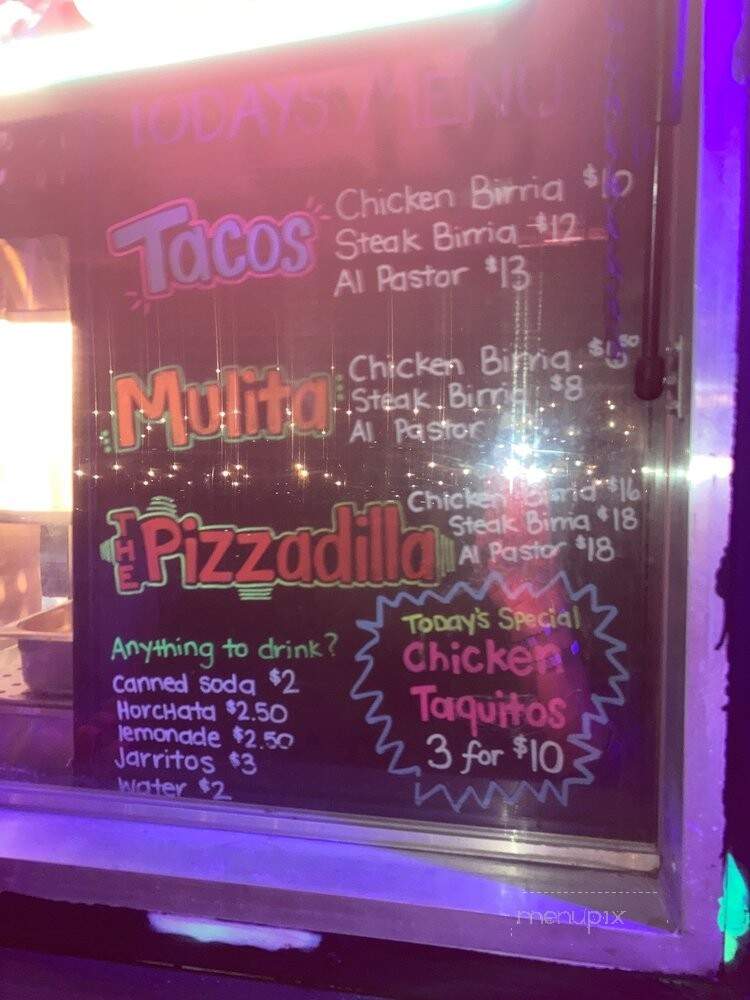 TODAYS MENU
Tacos
Chicken Birria $10
Steak Birria $12
Al Pastor $13
Mulita
Chicken Birria
Steak Birria $8
Al Pastor
THE Pizzadilla
Chicken Birria $16
Steak Birria $18
Al Pastor $18
Anything to drink?
Canned Soda $2
Horchata $2.50
lemonade $2.50
Jarritos $3
Water $2
TODAY'S Special
Chicken
Taquitos
3 for $10
menupix